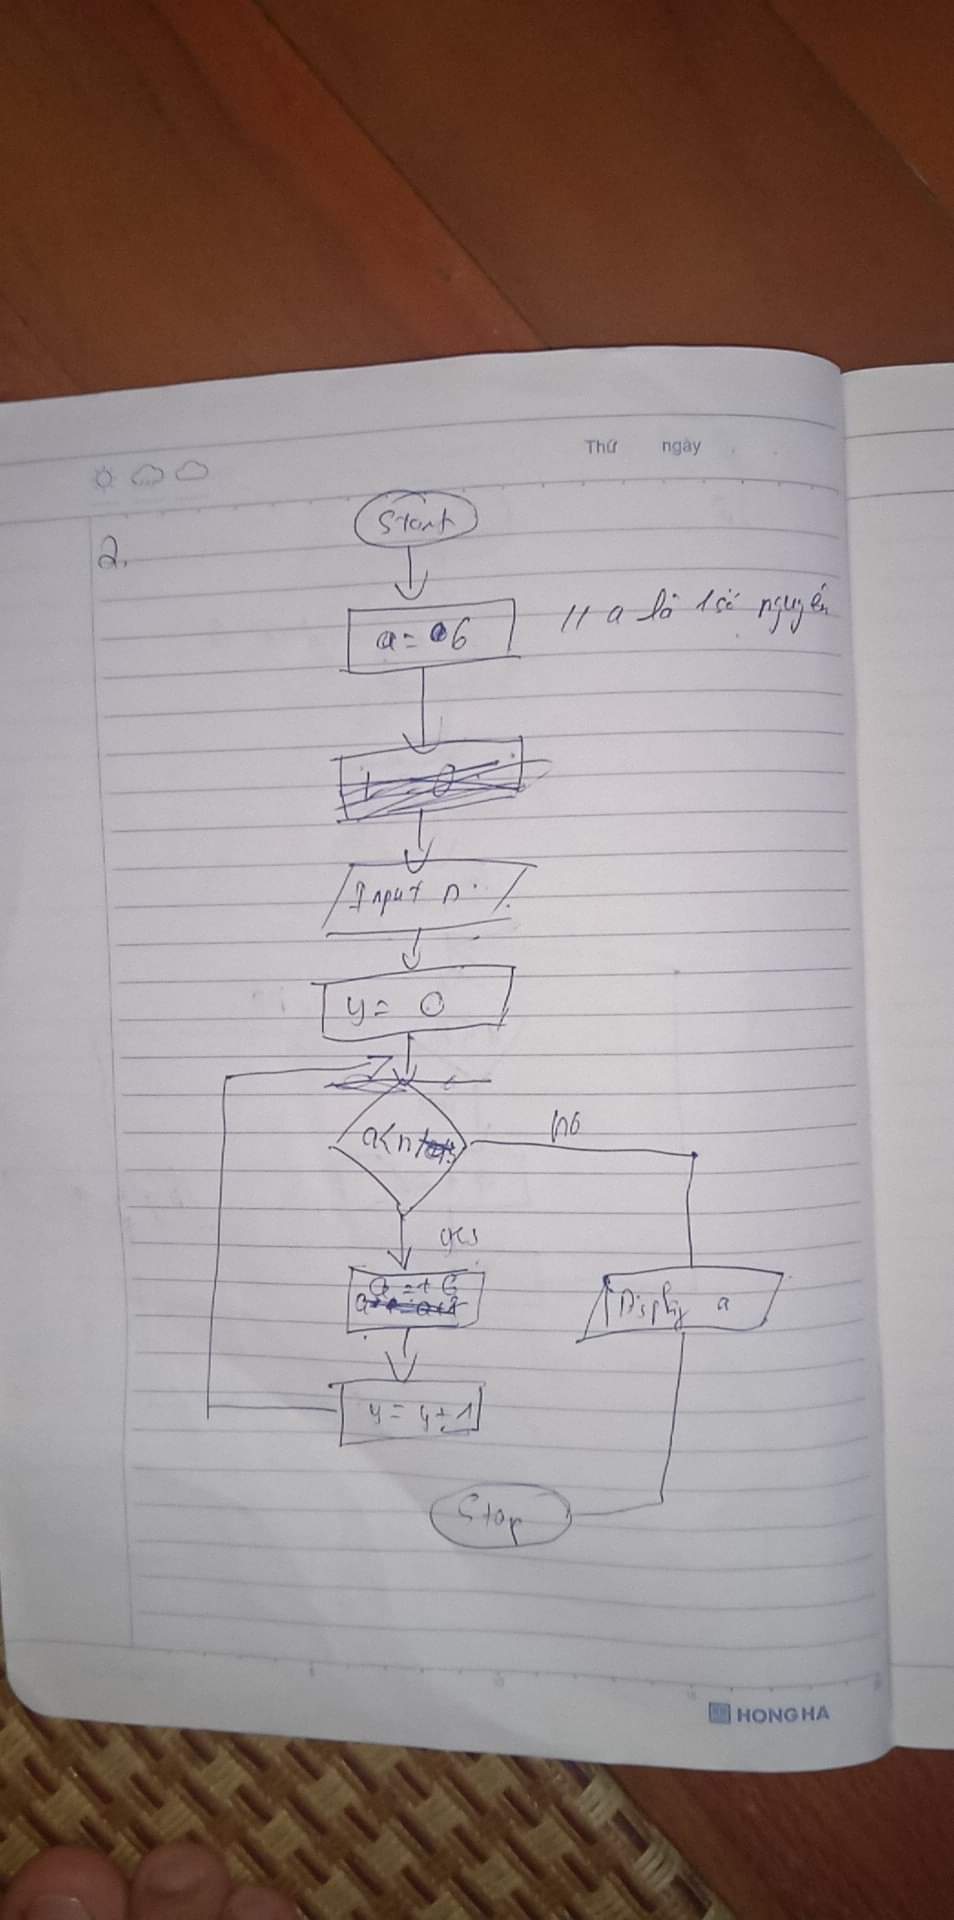 Thứ ngày
2.
Start
a = 6 // a là 1 số nguyên
Input n
y = 0
a<n
no
yes
a = + 6
Display a
y = y + 1
Stop
HONG HA